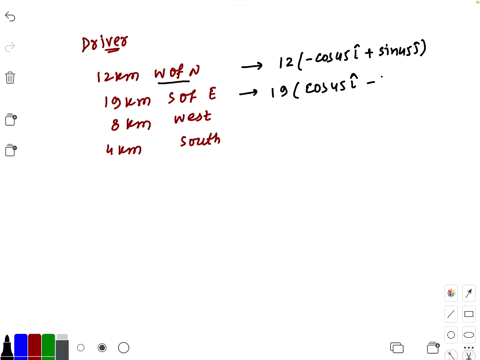 Driver
12km W of N → 12(-cos45 î + sin45 ĵ)
19km S of E → 19(cos45 î -
8 km West
4km South